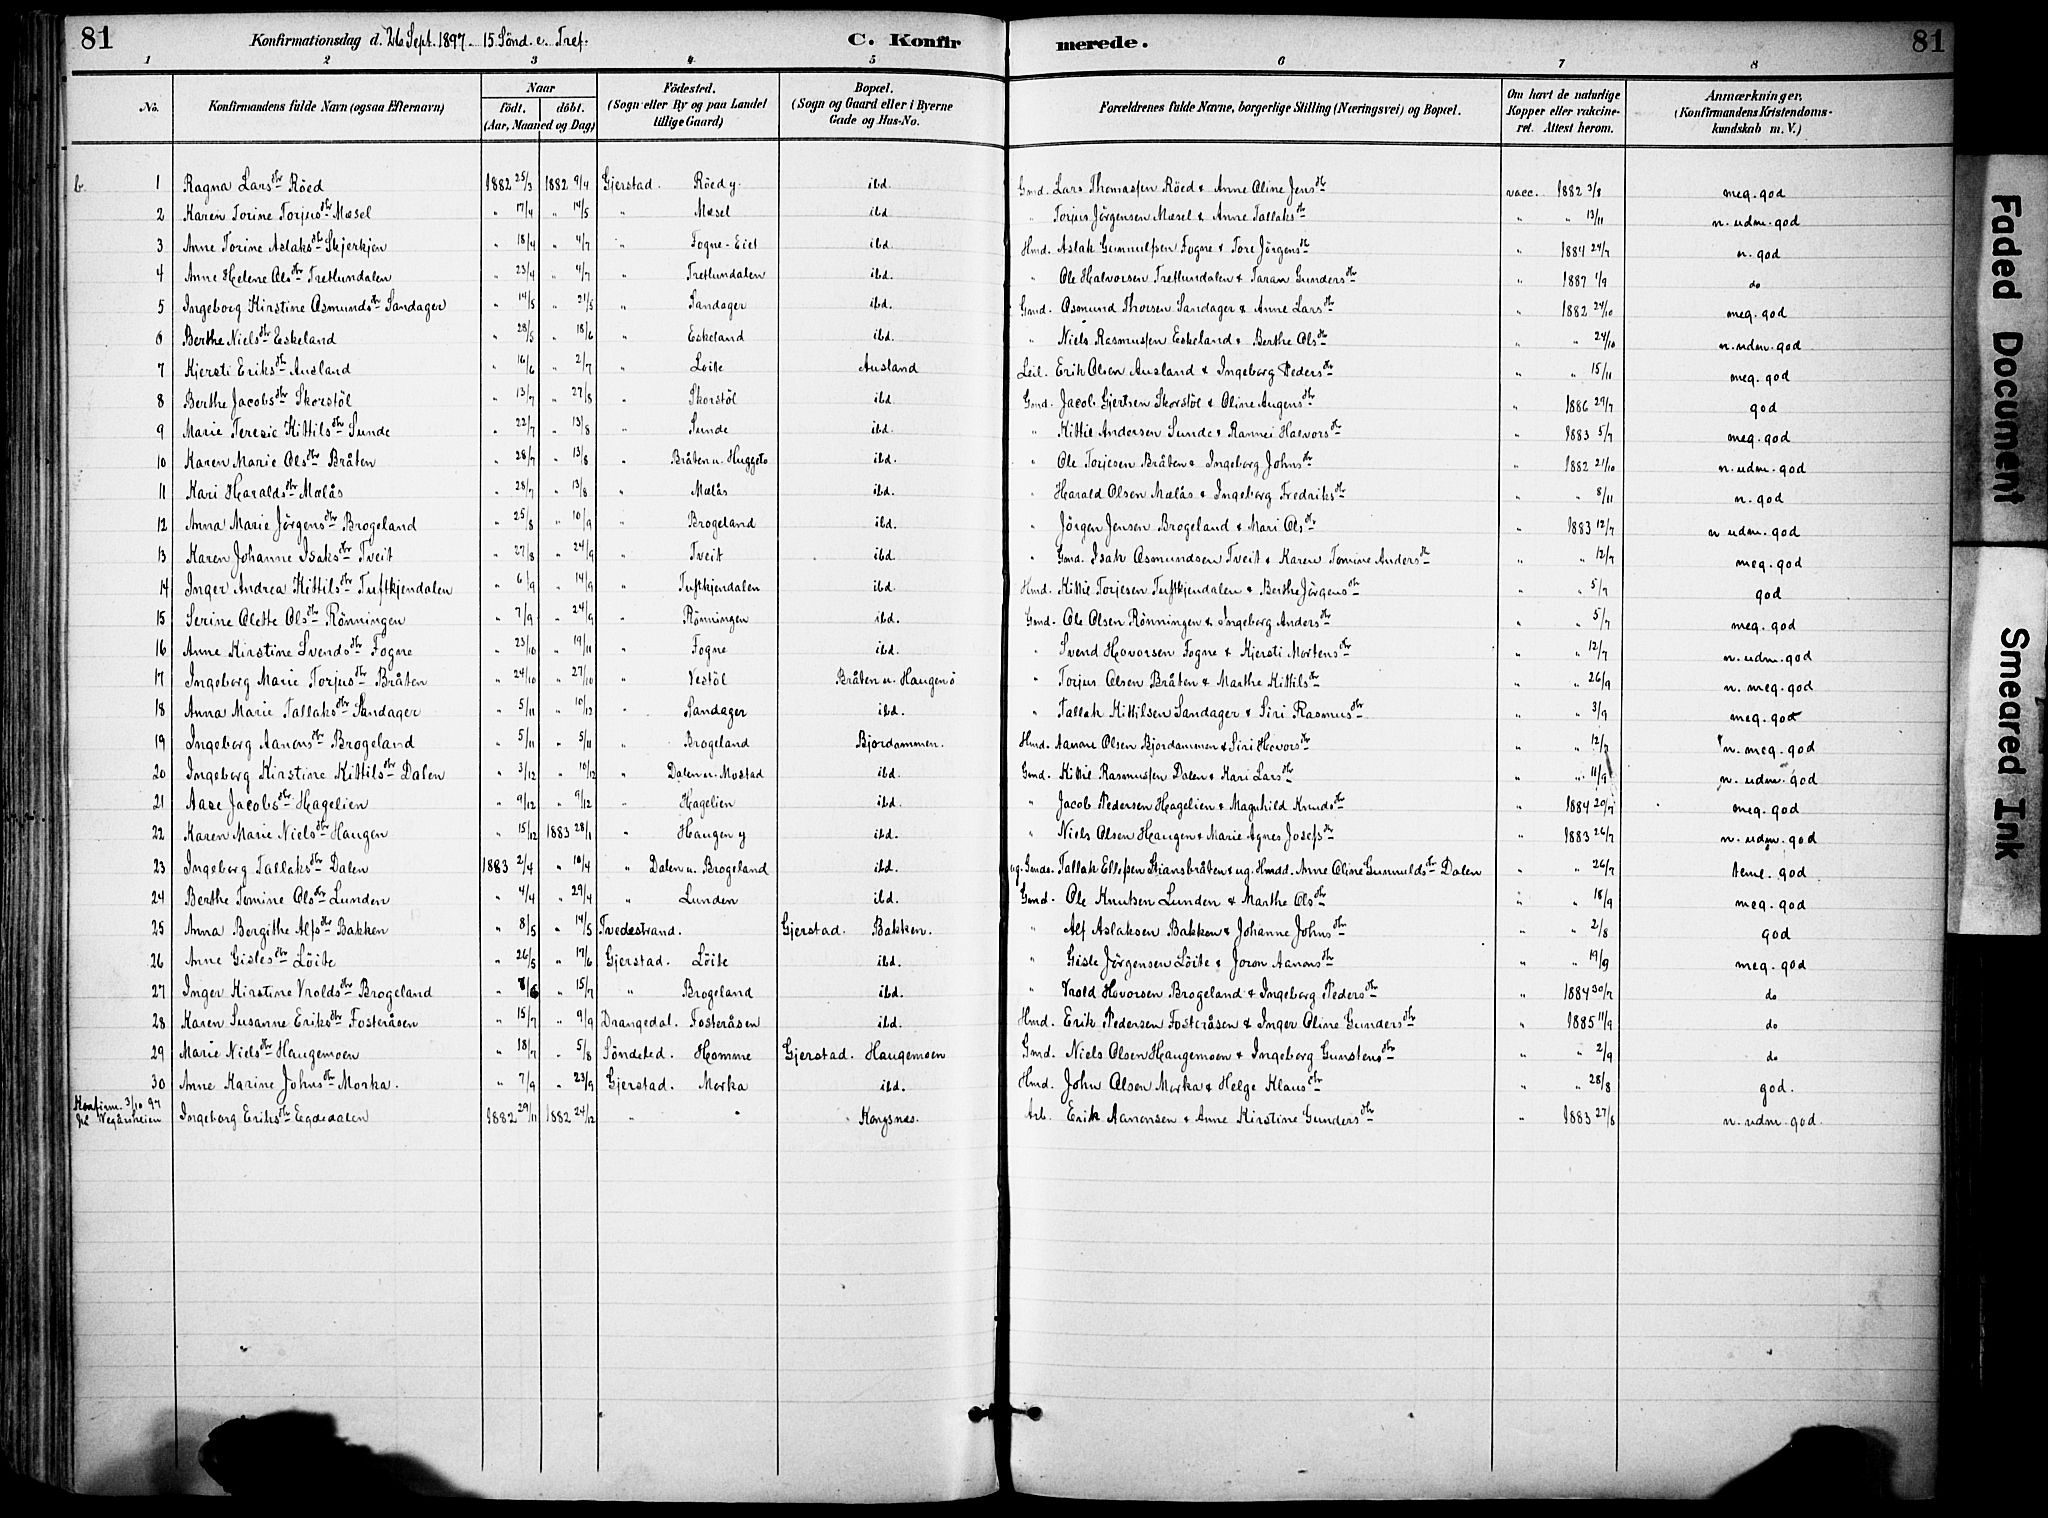 81 Konfirmationsdag d. 26 Sept. 1897. 15 Sönd. e. Tref. C. Konfirmerede. 81
1 2 3 4 5 6 7 8
No. Konfirmandens fulde Navn (ogsaa Efternavn) Naar födt. döbt. (Aar, Maaned og Dag) Födested. (Sogn eller By og paa Landet tillige Gaard) Bopæl. (Sogn og Gaard eller i Byerne Gade og Hus-No. Forældrenes fulde Navne, borgerlige Stilling (Næringsvei) og Bopæl. Om havt de naturlige Kopper eller vakcineret. Attest herom. Anmærkninger. (Konfirmandens Kristendomskundskab m. V.)
b. 1 Ragna Lars dtr Röed 1882 25/3 1882 9/4 Gjerstad. Röed y. ibd. Gmd. Lars Thomassen Röed & Anne Oline Jens dtr vacc. 1882 3/8 meg. god
2 Karen Torine Torjus dtr Mæsel " 17/4 " 14/5 " Mæsel ibd. " Torjus Jörgensen Mæsel & Anne Tallaks dtr " " 13/11 n. udm. god
3 Anne Torine Aslaks dtr Skjerkjen " 18/4 " 4/7 " Fogne-Eiet ibd. Hmd. Aslak Gunnulfsen Fogne & Tore Jörgens dtr " 1884 24/7 n. god
4 Anne Helene Ols dtr Tretlundalen " 23/4 " 4/7 " Tretlundalen ibd. " Ole Halvorsen Tretlundalen & Taran Gunders dtr " 1887 1/9 do
5 Ingeborg Kirstine Osmunds dtr Sandager " 14/5 " 21/5 " Sandager ibd. Gmd. Osmund Thorsen Sandager & Anne Lars dtr " 1882 24/10 meg. god
6 Berthe Niels dtr Eskeland " 28/5 " 18/6 " Eskeland ibd. " Niels Rasmussen Eskeland & Berthe Ols dtr " " 24/10 n. udm. god
7 Kjersti Eriks dtr Ausland " 16/6 " 2/7 " Löite Ausland Leil. Erik Olsen Ausland & Ingeborg Peders dtr " " 15/11 meg. god
8 Berthe Jacobs dtr Skorstöl " 13/7 " 27/8 " Skorstöl ibd. Gmd. Jacob Gjertsen Skorstöl & Oline Augens dtr " 1886 29/7 god
9 Marie Teresie Kittils dtr Sunde " 22/7 " 13/8 " Sunde ibd. " Kittil Andersen Sunde & Rannei Halvors dtr " 1883 5/7 meg. god
10 Karen Marie Ols dtr Bråten " 28/7 " 13/8 " Bråten u. Huggeto ibd. " Ole Torjesen Bråten & Ingeborg Johns dtr " 1882 21/10 n. udm. god
11 Kari Haralds dtr Mælås " 28/7 " 13/8 " Mælås ibd. " Harald Olsen Mælås & Ingeborg Fredriks dtr " " 8/11 n. god
12 Anna Marie Jörgens dtr Brogeland " 25/8 " 10/9 " Brogeland ibd. " Jörgen Jensen Brogeland & Mari Ols dtr " 1883 12/7 n udm. god
13 Karen Johanne Isaks dtr Tveit " 27/8 " 24/9 " Tveit ibd. " Gmd. Isak Osmundsen Tveit & Karen Tomine Anders dtr " " 12/7 meg. god
14 Inger Andrea Kittils dtr Tuftkjendalen " 6/9 " 14/9 " Tuftkjendalen ibd. Hmd. Kittil Torjesen Tuftkjendalen & Berthe Jörgens dtr " " 5/7 god
15 Serine Olette Ols dtr Rönningen " 7/9 " 24/9 " Rönningen ibd. Gmd. Ole Olsen Rönningen & Ingeborg Anders dtr " " 5/7 meg. god
16 Anne Kirstine Svends dtr Fogne " 23/10 " 19/11 " Fogne ibd. " Svend Hovorsen Fogne & Kjersti Mortens dtr " " 12/7 n. udm. god
17 Ingeborg Marie Torjus dtr Bråten " 24/10 " 27/10 " Vestöl Bråten u. Haugenö " Torjus Olsen Bråten & Marthe Kittils dtr " " 26/9 n. meg. god
18 Anna Marie Tallaks dtr Sandager " 5/11 " 10/12 " Sandager ibd. " Tallak Kittilsen Sandager & Siri Rasmus dtr " " 3/9 meg. god
19 Ingeborg Aanons dtr Brogeland " 5/11 " 5/11 " Brogeland Bjordammen. Hmd. Aanon Olsen Bjordammen & Siri Hovors dtr " " 12/7 n. meg. god
20 Ingeborg Kirstine Kittils dtr Dalen " 3/12 " 10/12 " Dalen u. Mostad ibd. Gmd. Kittil Rasmussen Dalen & Kari Lars dtr " " 11/9 n. udm. god
21 Aase Jacobs dtr Hagelien " 9/12 " 9/12 " Hagelien ibd. " Jacob Pedersen Hagelien & Magnhild Knuds dtr " 1884 20/7 meg. god
22 Karen Marie Niels dtr Haugen " 15/12 1883 28/1 " Haugen y ibd. " Niels Olsen Haugen & Marie Agnes Josefs dtr " 1883 26/7 n. udm. god
23 Ingeborg Tallaks dtr Dalen 1883 2/4 " 10/4 " Dalen u. Brogeland ibd. ug. Gmds. Tallak Ellefsen Stiansbråten & ug. Hmdd. Anne Oline Gunnulds dtr Dalen " " 26/7 teml. god
24 Berthe Tomine Ols dtr Lunden " 4/4 " 29/4 " Lunden ibd. Gmd. Ole Knutsen Lunden & Marthe Ols dtr " " 18/9 meg. god
25 Anna Bergithe Alfs dtr Bakken " 8/5 " 14/5 Tvedestrand. Gjerstad. Bakken. " Alf Aslaksen Bakken & Johanne Johns dtr " " 2/8 god
26 Anne Gisles dtr Löite " 26/5 " 17/6 Gjerstad. Löite ibd. " Gisle Jörgensen Löite & Joron Aanons dtr " " 19/9 meg. god
27 Inger Kirstine Vrolds dtr Brogeland " 8/6 " 15/7 " Brogeland ibd. " Vrold Hovorsen Brogeland & Ingeborg Peders dtr " 1884 30/7 do
28 Karen Susanne Eriks dtr Fosteråsen " 15/7 " 9/9 Drangedal. Fosteråsen ibd. Hmd. Erik Pedersen Fosteråsen & Inger Oline Gunders dtr " 1885 11/9 do
29 Marie Niels dtr Haugemoen " 18/7 " 5/8 Söndeled. Homme Gjerstad. Haugemoen Gmd. Niels Olsen Haugemoen & Ingeborg Gunstens dtr " " 2/9 do
30 Anne Karine Johns dtr Morka. " 7/9 " 23/9 Gjerstad. Morka ibd. Hmd. John Olsen Morka & Helge Klaus dtr " " 28/8 god.
Konfirm. 3/10 97 på Wegårsheien Ingeborg Eriks dtr Egdedalen 1882 29/11 1882 24/12 " " Kongsnæs. Arb. Erik Aanonsen & Anne Kirstine Gunders dtr " 1883 27/8 n. udm. god.
Faded Document
Smeared Ink